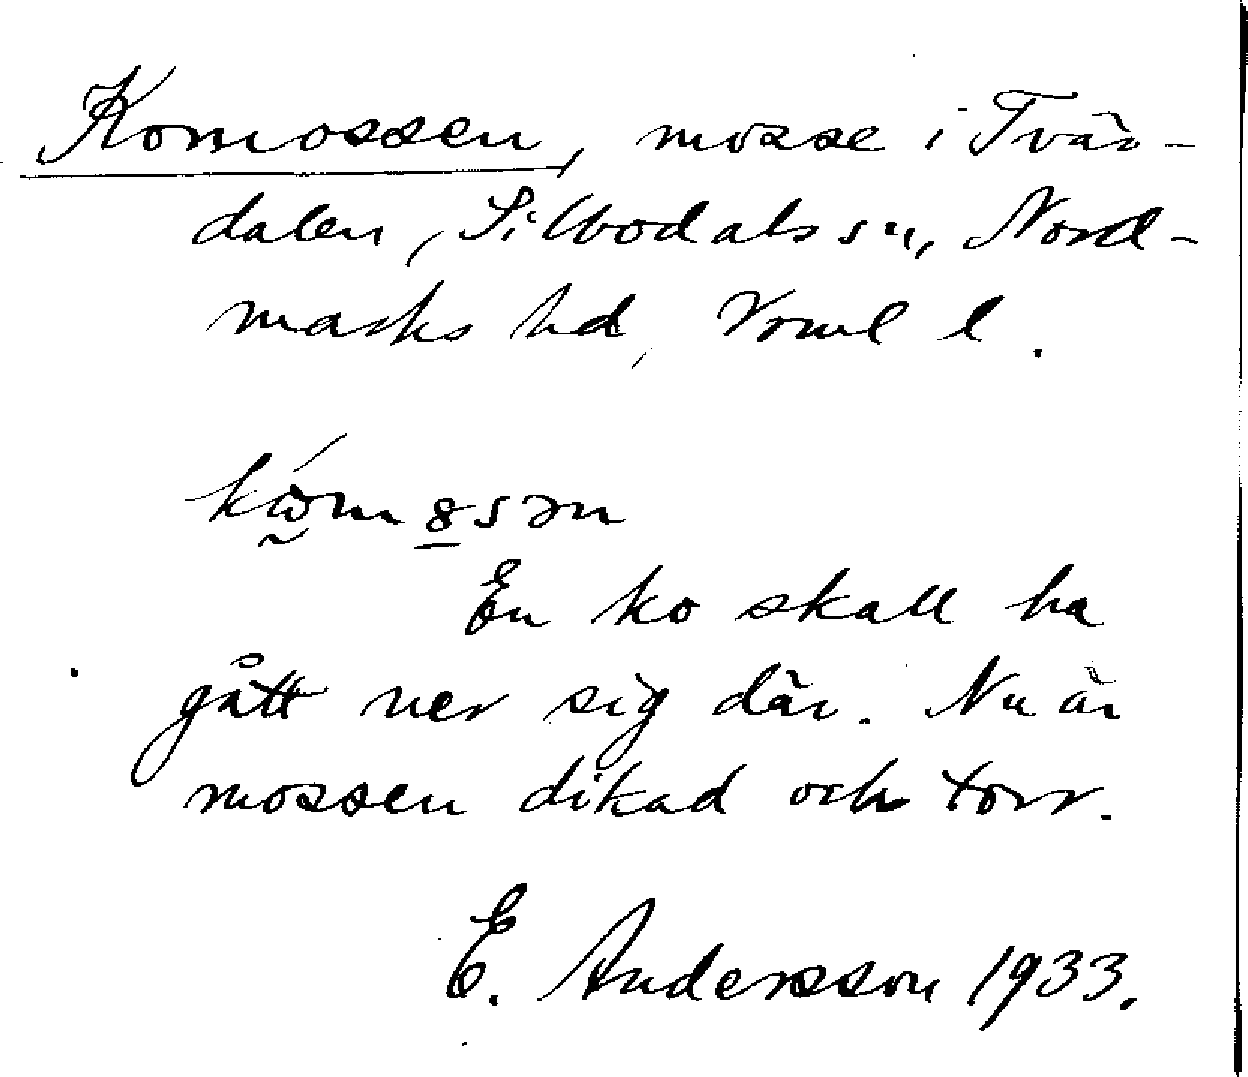 Komossen, mosse i Tvär-
dalen, Silbodals sn, Nord-
marks hd, Vrml l.
En ko skall ha
gått ner sig där. Nu är
mossen dikad och torr.
E. Andersson 1933.